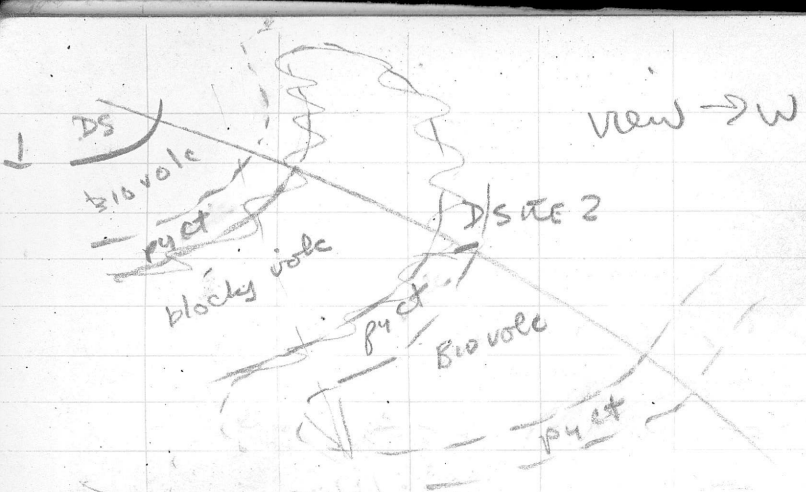 view → W
DS
Bio volc
pyct
blocky volc
D/SITE 2
pyct
Bio volc
pyct